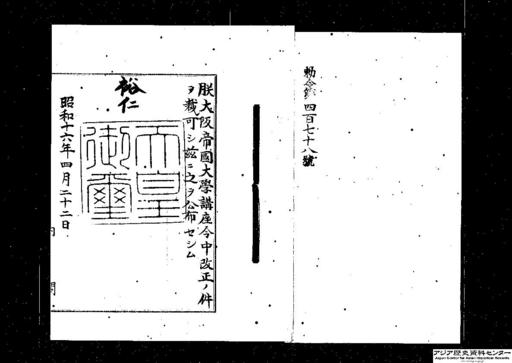 勅令第四百七十八號
朕大阪帝國大學講座令中改正ノ件
ヲ裁可シ茲ニ之ヲ公布セシム
裕仁
天皇御璽
昭和十六年四月二十二日
内閣
アジア歴史資料センター
Japan Center for Asian Historical Records